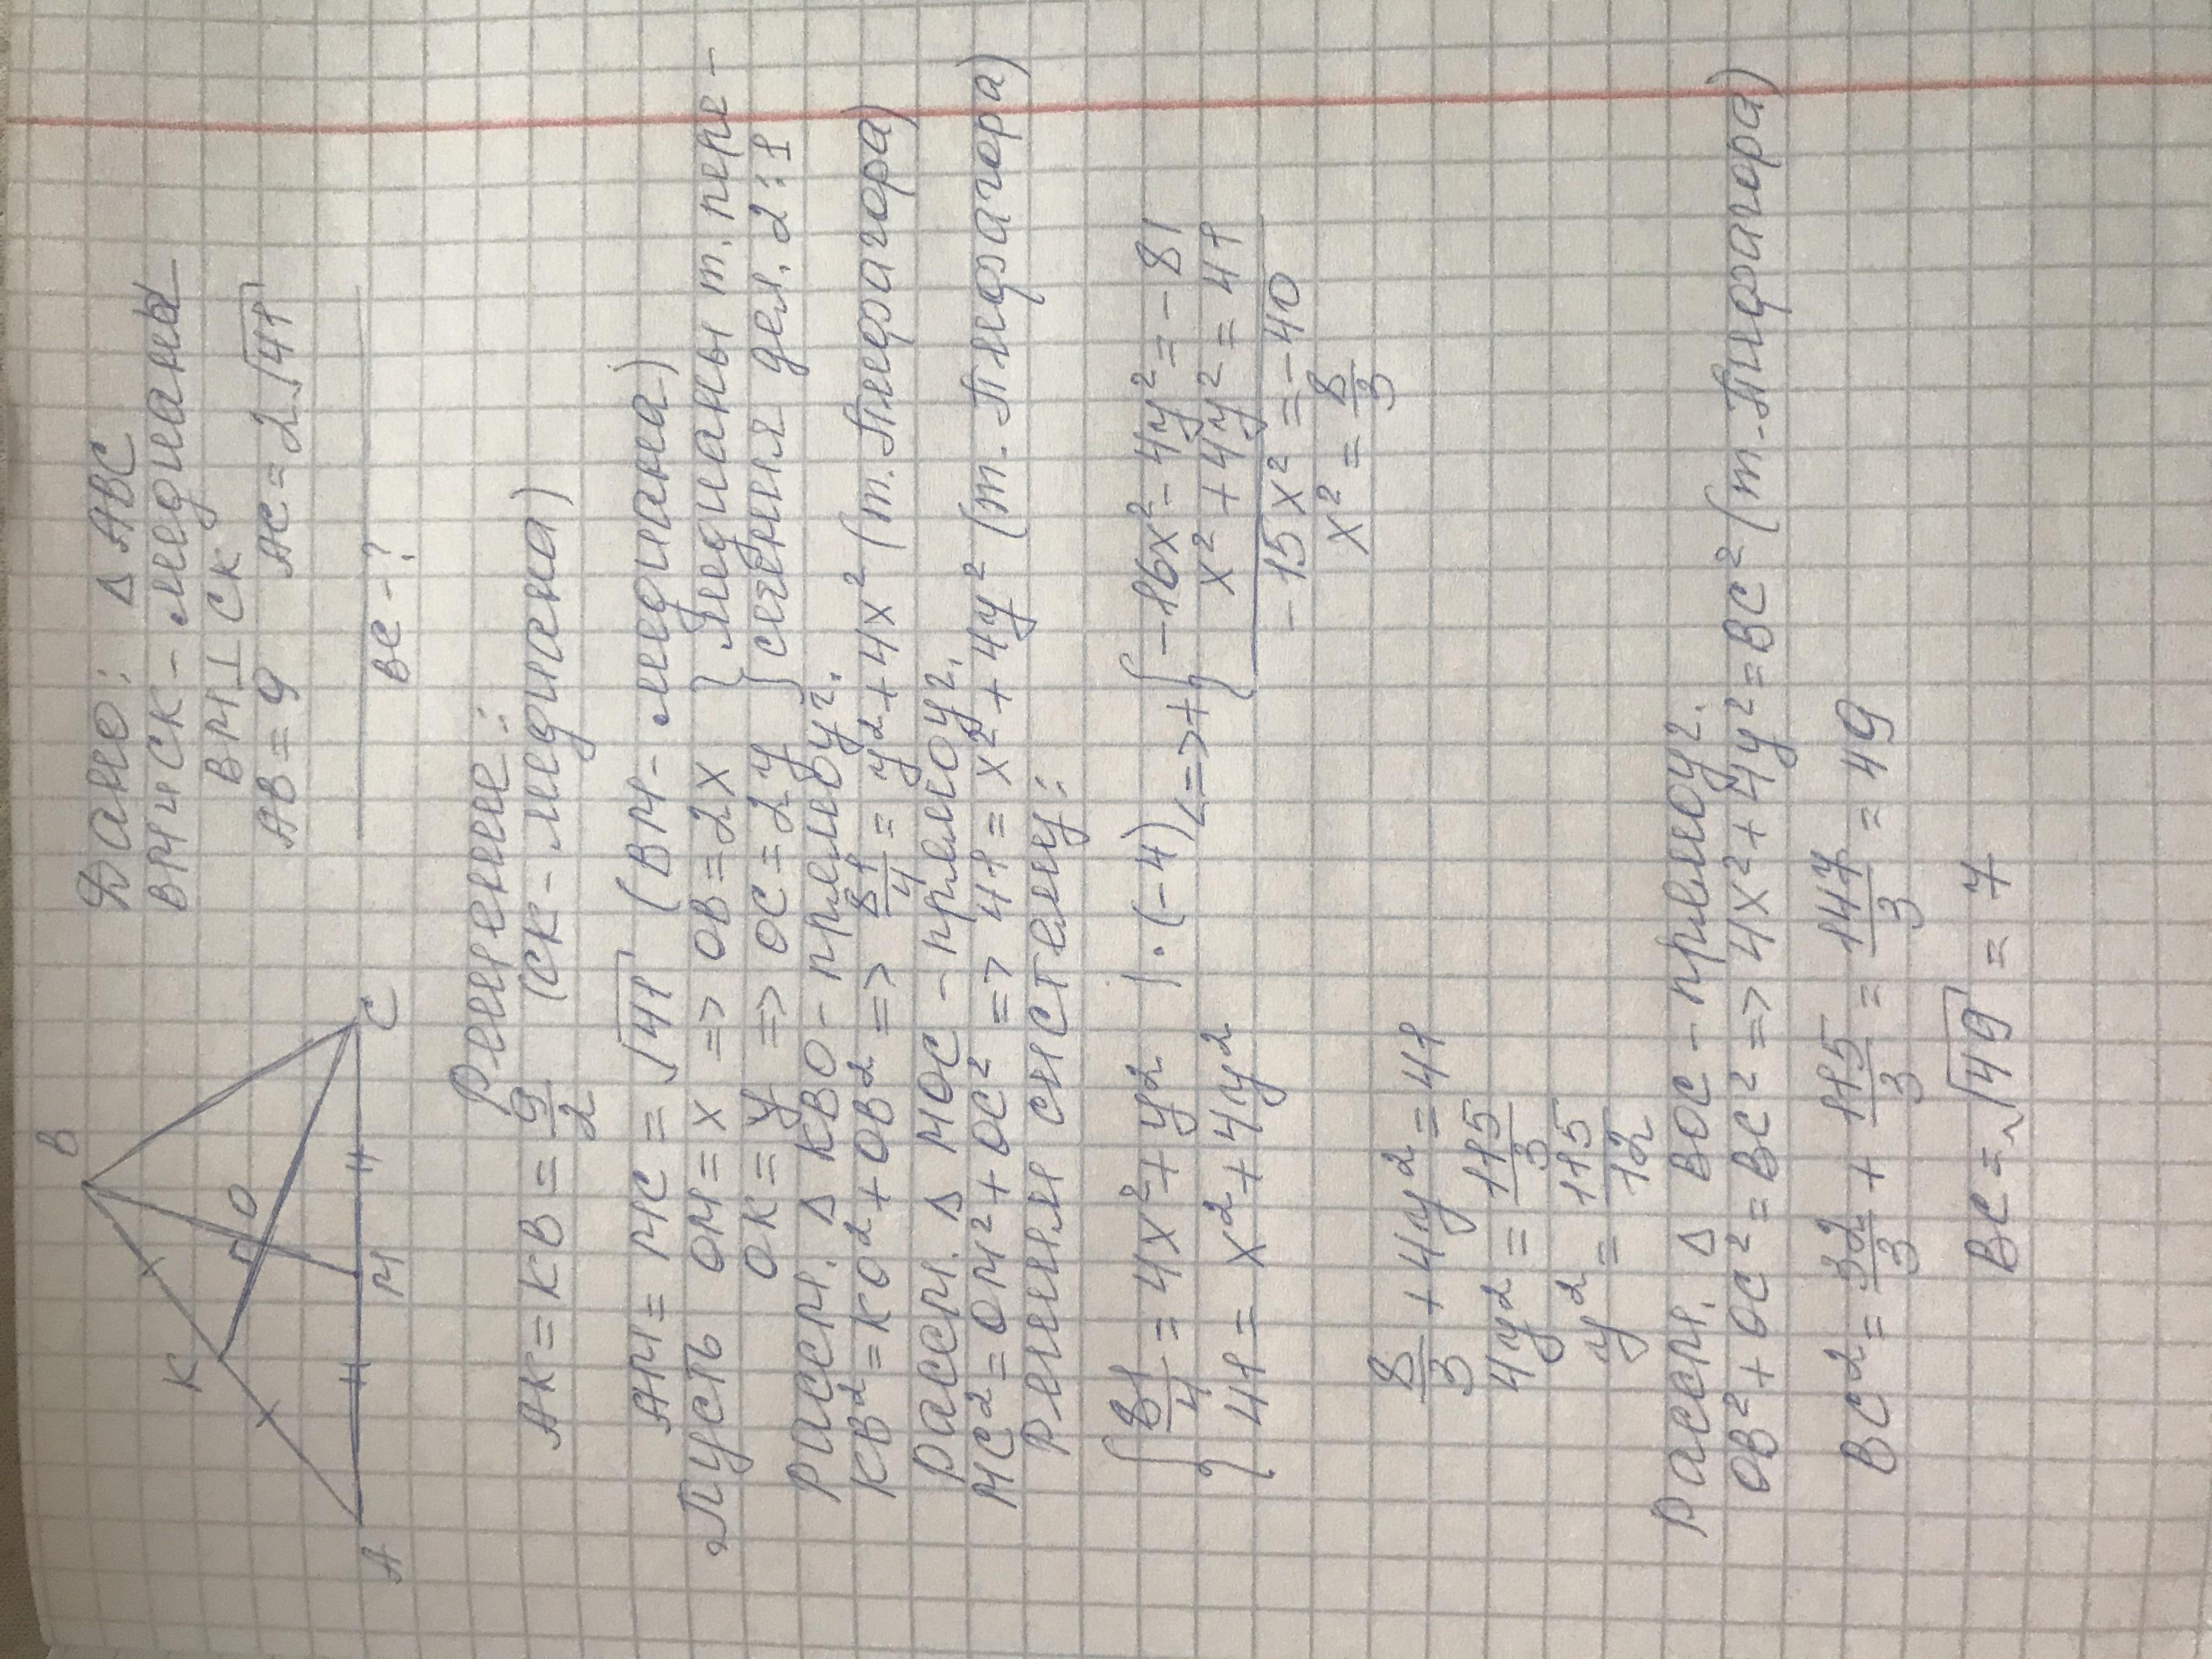 Дано: Δ ABC
BM и CK - медианы
BM ⊥ CK
AB = 9 AC = 2√41
BC - ?
B
K
O
A
M
C
Решение:
AK = KB = 9/2 (CK - медиана)
AM = MC = √41 (BM - медиана)
Пусть OM = x => OB = 2x } медианы т. пере-
OK = y => OC = 2y } сечения дел. 2:1
Рассм. Δ KBO - прямоуг.
KB² = KO² + OB² => 81/4 = y² + 4x² (т. Пифагора)
Рассм. Δ MOC - прямоуг.
MC² = OM² + OC² => 41 = x² + 4y² (т. Пифагора)
Решим систему:
{ 81/4 = 4x² + y² | · (-4) <=> + { -16x² - 4y² = -81
41 = x² + 4y² x² + 4y² = 41
-15x² = -40
x² = 8/3
8/3 + 4y² = 41
4y² = 115/3
y² = 115/12
Рассм. Δ BOC - прямоуг.
OB² + OC² = BC² => 4x² + 4y² = BC² (т. Пифагора)
BC² = 32/3 + 115/3 = 147/3 = 49
BC = √49 = 7